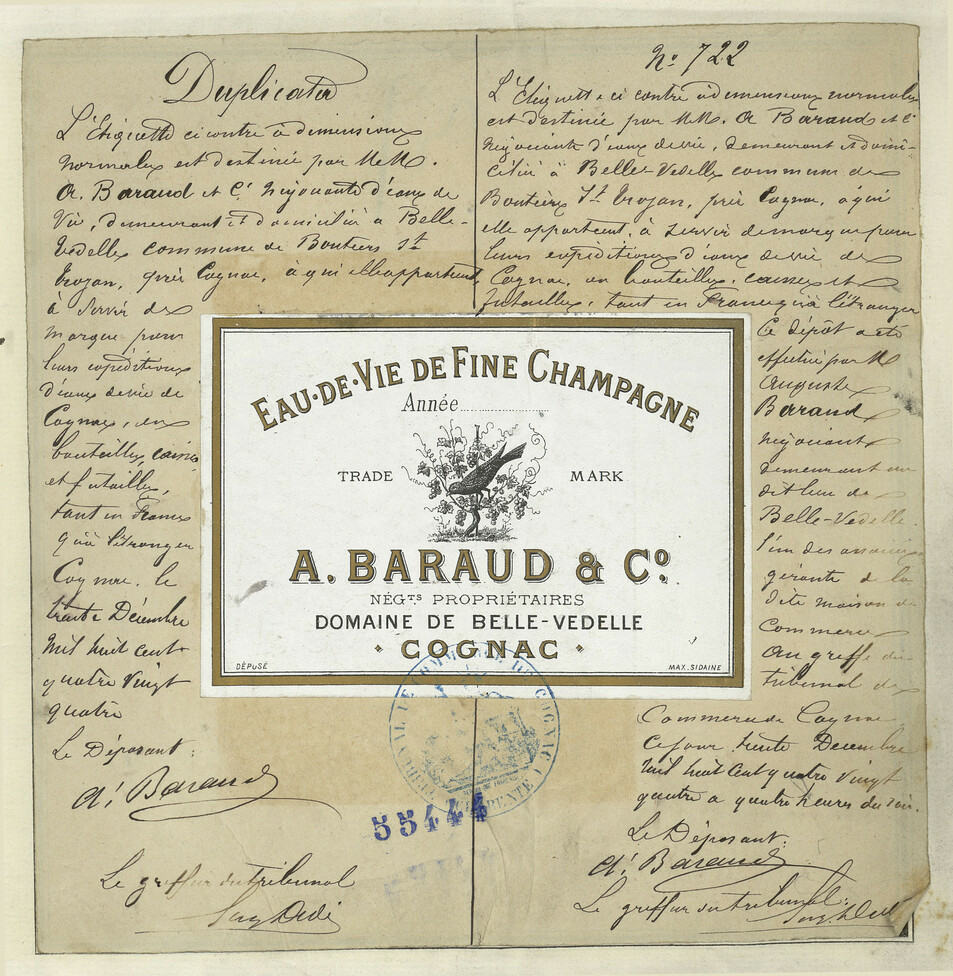 Duplicata
L'Etiquette ci contre à dimensions
normales est destinée par MM.
A. Baraud et Cie Négociants d'eaux de
Vie, demeurant et domiciliés à Belle-
Vedelle commune de Boutiers St
Trojan, près Cognac, à qui elle appartient
à servir de
marque pour
leurs expéditions
d'eaux de vie de
Cognac, en
bouteilles, caisses
et futailles,
tant en France
qu'à l'étranger
Cognac, le
trente Décembre
Mil huit cent
quatre vingt
quatre
Le Déposant:
A. Baraud
Le greffier du tribunal
No 722
L'Etiquette ci contre à dimensions normales
est destinée par MM. A. Baraud et Cie
Négociants d'eaux de vie, demeurant et domi-
ciliés à Belle-Vedelle commune de
Boutiers St Trojan, près Cognac, à qui
elle appartient, à servir de marque pour
leurs expéditions d'eaux de vie de
Cognac, en bouteilles, caisses et
futailles, tant en France qu'à l'étranger
Ce dépôt a été
effectué par M
Auguste
Baraud
négociant
demeurant au
dit lieu de
Belle-Vedelle
l'un des associés
gérants de la
dite maison de
Commerce
au greffe du
tribunal de
Commerce de Cognac
ce jour trente Décembre
mil huit cent quatre vingt
quatre à quatre heures du soir.
Le Déposant:
A. Baraud
Le greffier du tribunal:
EAU-DE-VIE DE FINE CHAMPAGNE
Année
TRADE MARK
A. BARAUD & Co.
NÉGTS PROPRIÉTAIRES
DOMAINE DE BELLE-VEDELLE
COGNAC
DÉPOSÉ MAX. SIDAINE
TRIBUNAL DE COMMERCE DE COGNAC
55444